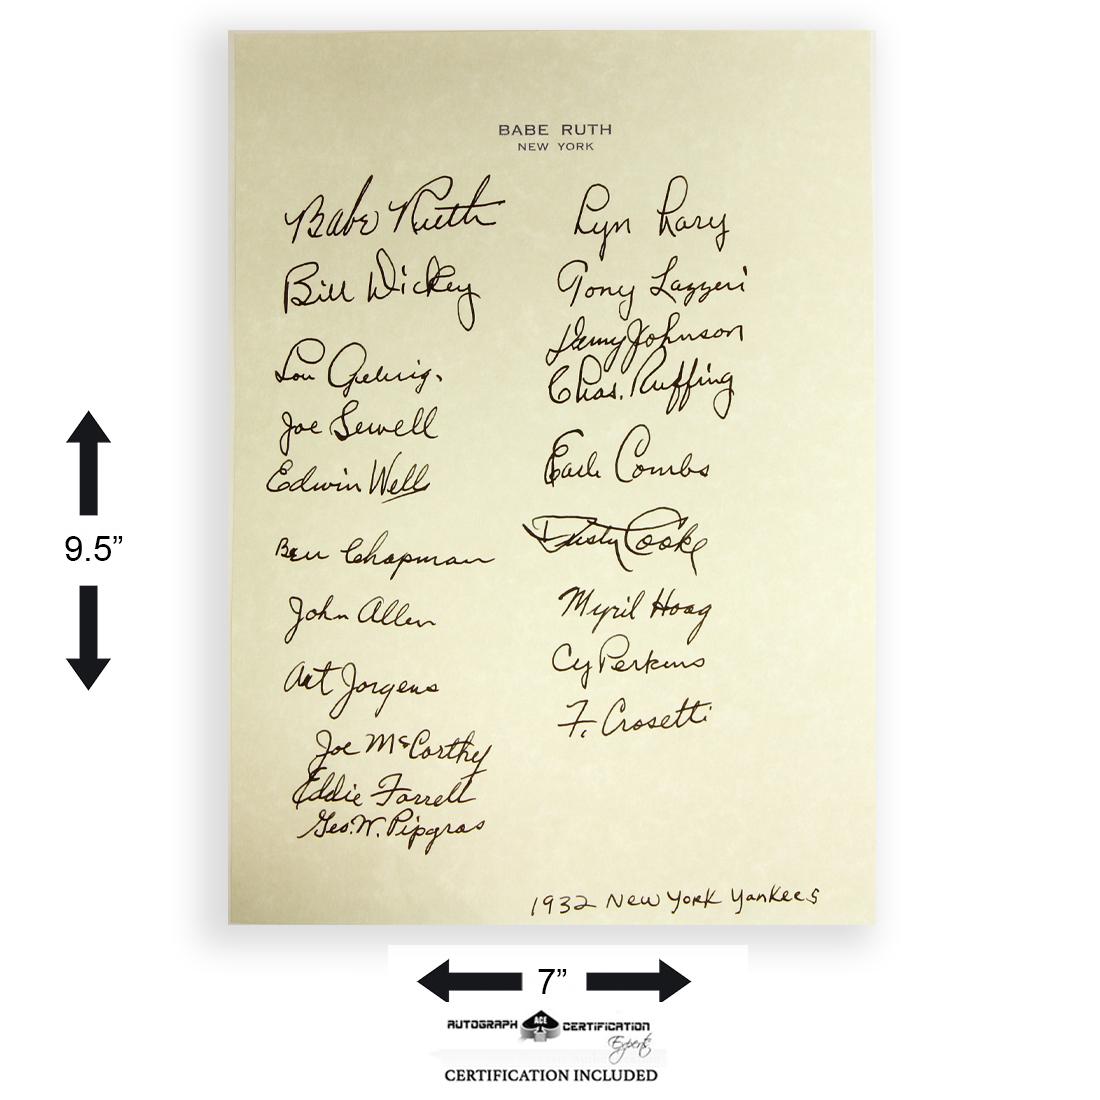 BABE RUTH
NEW YORK
Babe Ruth
Bill Dickey
Lou Gehrig.
Joe Sewell
Edwin Wells
Ben Chapman
John Allen
Art Jorgens
Joe McCarthy
Eddie Farrell
Geo. W. Pipgras
Lyn Lary
Tony Lazzeri
Johnson
Chas. Ruffing
Earle Combs
Dusty Cooke
Myril Hoag
Cy Perkins
F. Crosetti
1932 New York Yankees
9.5”
7”
AUTOGRAPH ACE CERTIFICATION
Experts
CERTIFICATION INCLUDED